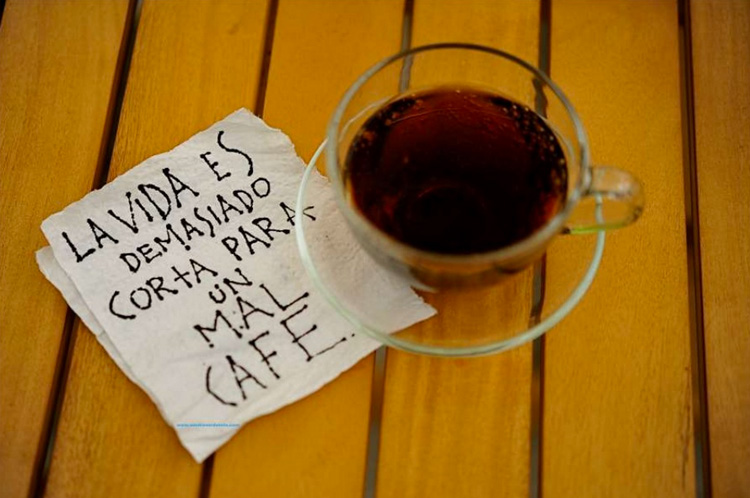 LA VIDA ES
DEMASIADO
CORTA PARA
UN
MAL
CAFE.